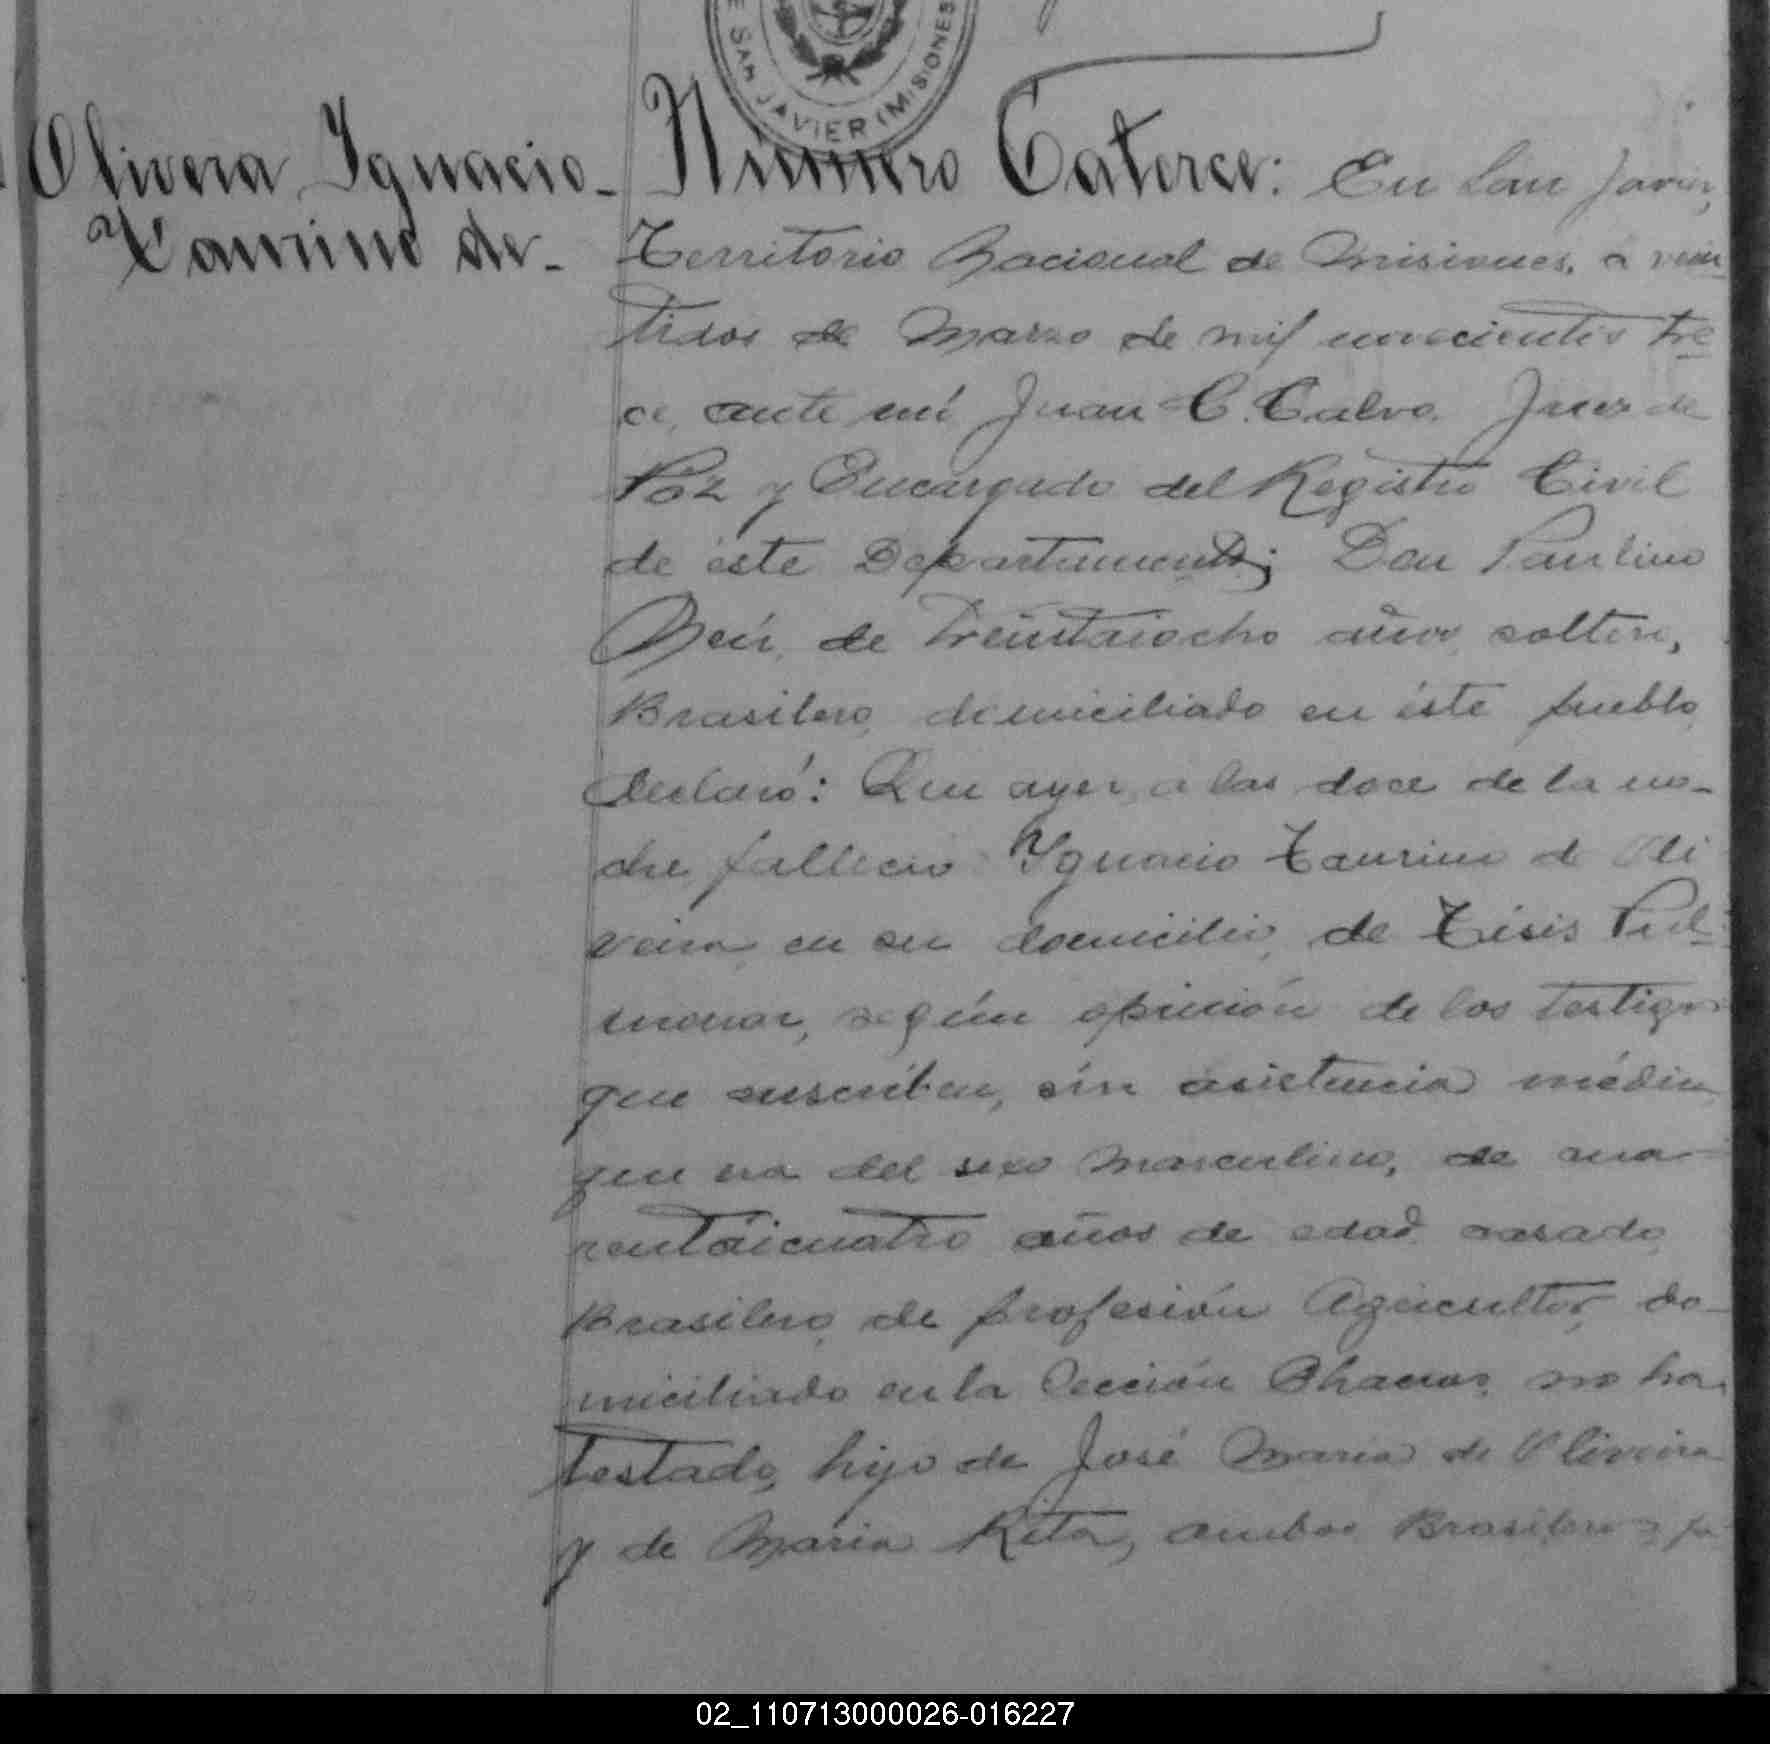 E SAN JAVIER (MISIONES
Olivera Ignacio
Taurino de
Número Catorce: En San Javier,
Territorio Nacional de Misiones, a vein
tidos de Marzo de mil novecientos tre
ce, ante mí Juan C. Calvo. Juez de
Paz y Encargado del Registro Civil
de éste Departamento; Don Paulino
de treintaiocho años, soltero,
Brasilero, domiciliado en éste pueblo,
declaró: Que ayer, a las doce de la no-
che falleció Ygnacio Taurino de Oli
veira, en su domicilio, de Tisis Pul-
monar, según opinión de los testigos
que suscriben, sin asistencia médica,
que era del sexo masculino, de cua-
rentaicuatro años de edad, casado,
Brasilero, de profesión Agricultor, do-
miciliado en la Sección Chacras, no ha
testado, hijo de José Maria de Oliveira
y de Maria Rita, ambos Brasileros,
02_110713000026-016227